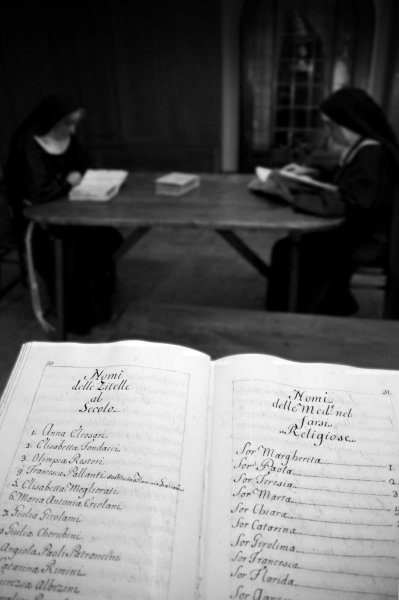 20
Nomi
delle Zitelle
al
Secolo
1. Anna Cleosari
2. Elisabetta Fondacci
3. Olimpia Restori
4. Francesca Pallanti
5. Elisabetta Megliorati
6. Maria Antonia Ercolani
7. Giulia Girolami
Giulia Cherubini
Angiola Paoli Patroncini
Rimini
Albizini
21
Nomi
delle Med.e nel
farsi
Religiose
Sor Margherita 1
Sor Paola 2
Sor Teresia 3
Sor Marta 4
Sor Chiara 5
Sor Catarina
Sor Girolima
Sor Francesca
Sor Florida
Sor